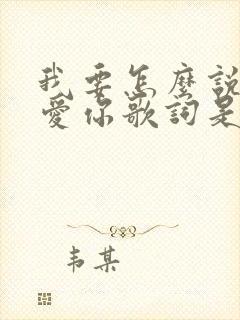 我要怎麼說
愛你歌詞是
韦某